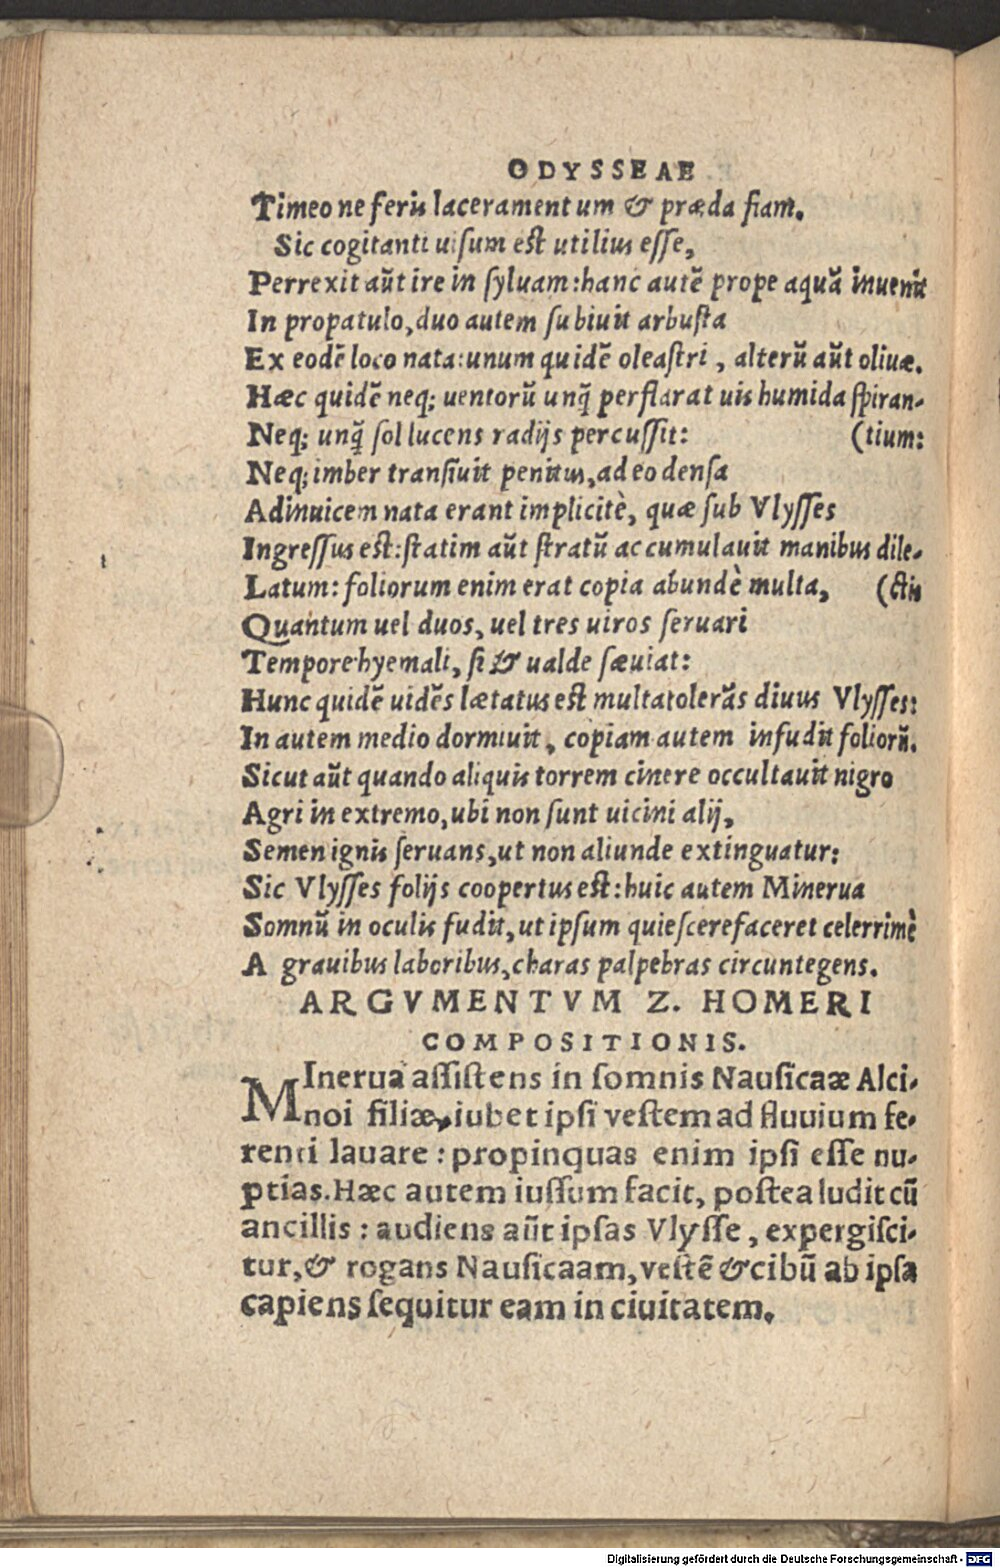 ODYSSEAE
Timeo ne feris laceramentum & præda fiam.
Sic cogitanti uisum est utilius esse,
Perrexit aūt ire in syluam: hanc autē prope aquā inuenit
In propatulo, duo autem subiuit arbusta
Ex eodē loco nata: unum quidē oleastri, alterū aūt oliuæ.
Hæc quidē neq; uentorū unq̃ perflarat uis humida spiran-
Neq; unq̃ sol lucens radijs percussit: (tium:
Neq; imber transiuit penitus, adeo densa
Adinuicem nata erant implicitè, quæ sub Vlysses
Ingressus est: statim aūt stratū accumulauit manibus dile-
Latum: foliorum enim erat copia abundè multa, (ctis
Quantum uel duos, uel tres uiros seruari
Tempore hyemali, si & ualde sæuiat:
Hunc quidē uidēs lætatus est multa tolerās diuus Vlysses:
In autem medio dormiuit, copiam autem infudit foliorū.
Sicut aūt quando aliquis torrem cinere occultauit nigro
Agri in extremo, ubi non sunt uicini alij,
Semen ignis seruans, ut non aliunde extinguatur:
Sic Vlysses folijs coopertus est: huic autem Minerua
Somnū in oculis fudit, ut ipsum quiescere faceret celerrimè
A grauibus laboribus, charas palpebras circuntegens.
ARGVMENTVM Z. HOMERI
COMPOSITIONIS.
MInerua assistens in somnis Nausicaæ Alci-
noi filiæ, iubet ipsi vestem ad fluuium fe-
renti lauare: propinquas enim ipsi esse nu-
ptias. Hæc autem iussum facit, postea ludit cū
ancillis: audiens aūt ipsas Vlysse, expergisci-
tur, & rogans Nausicaam, vestē & cibū ab ipsa
capiens sequitur eam in ciuitatem.
Digitalisierung gefördert durch die Deutsche Forschungsgemeinschaft - DFG